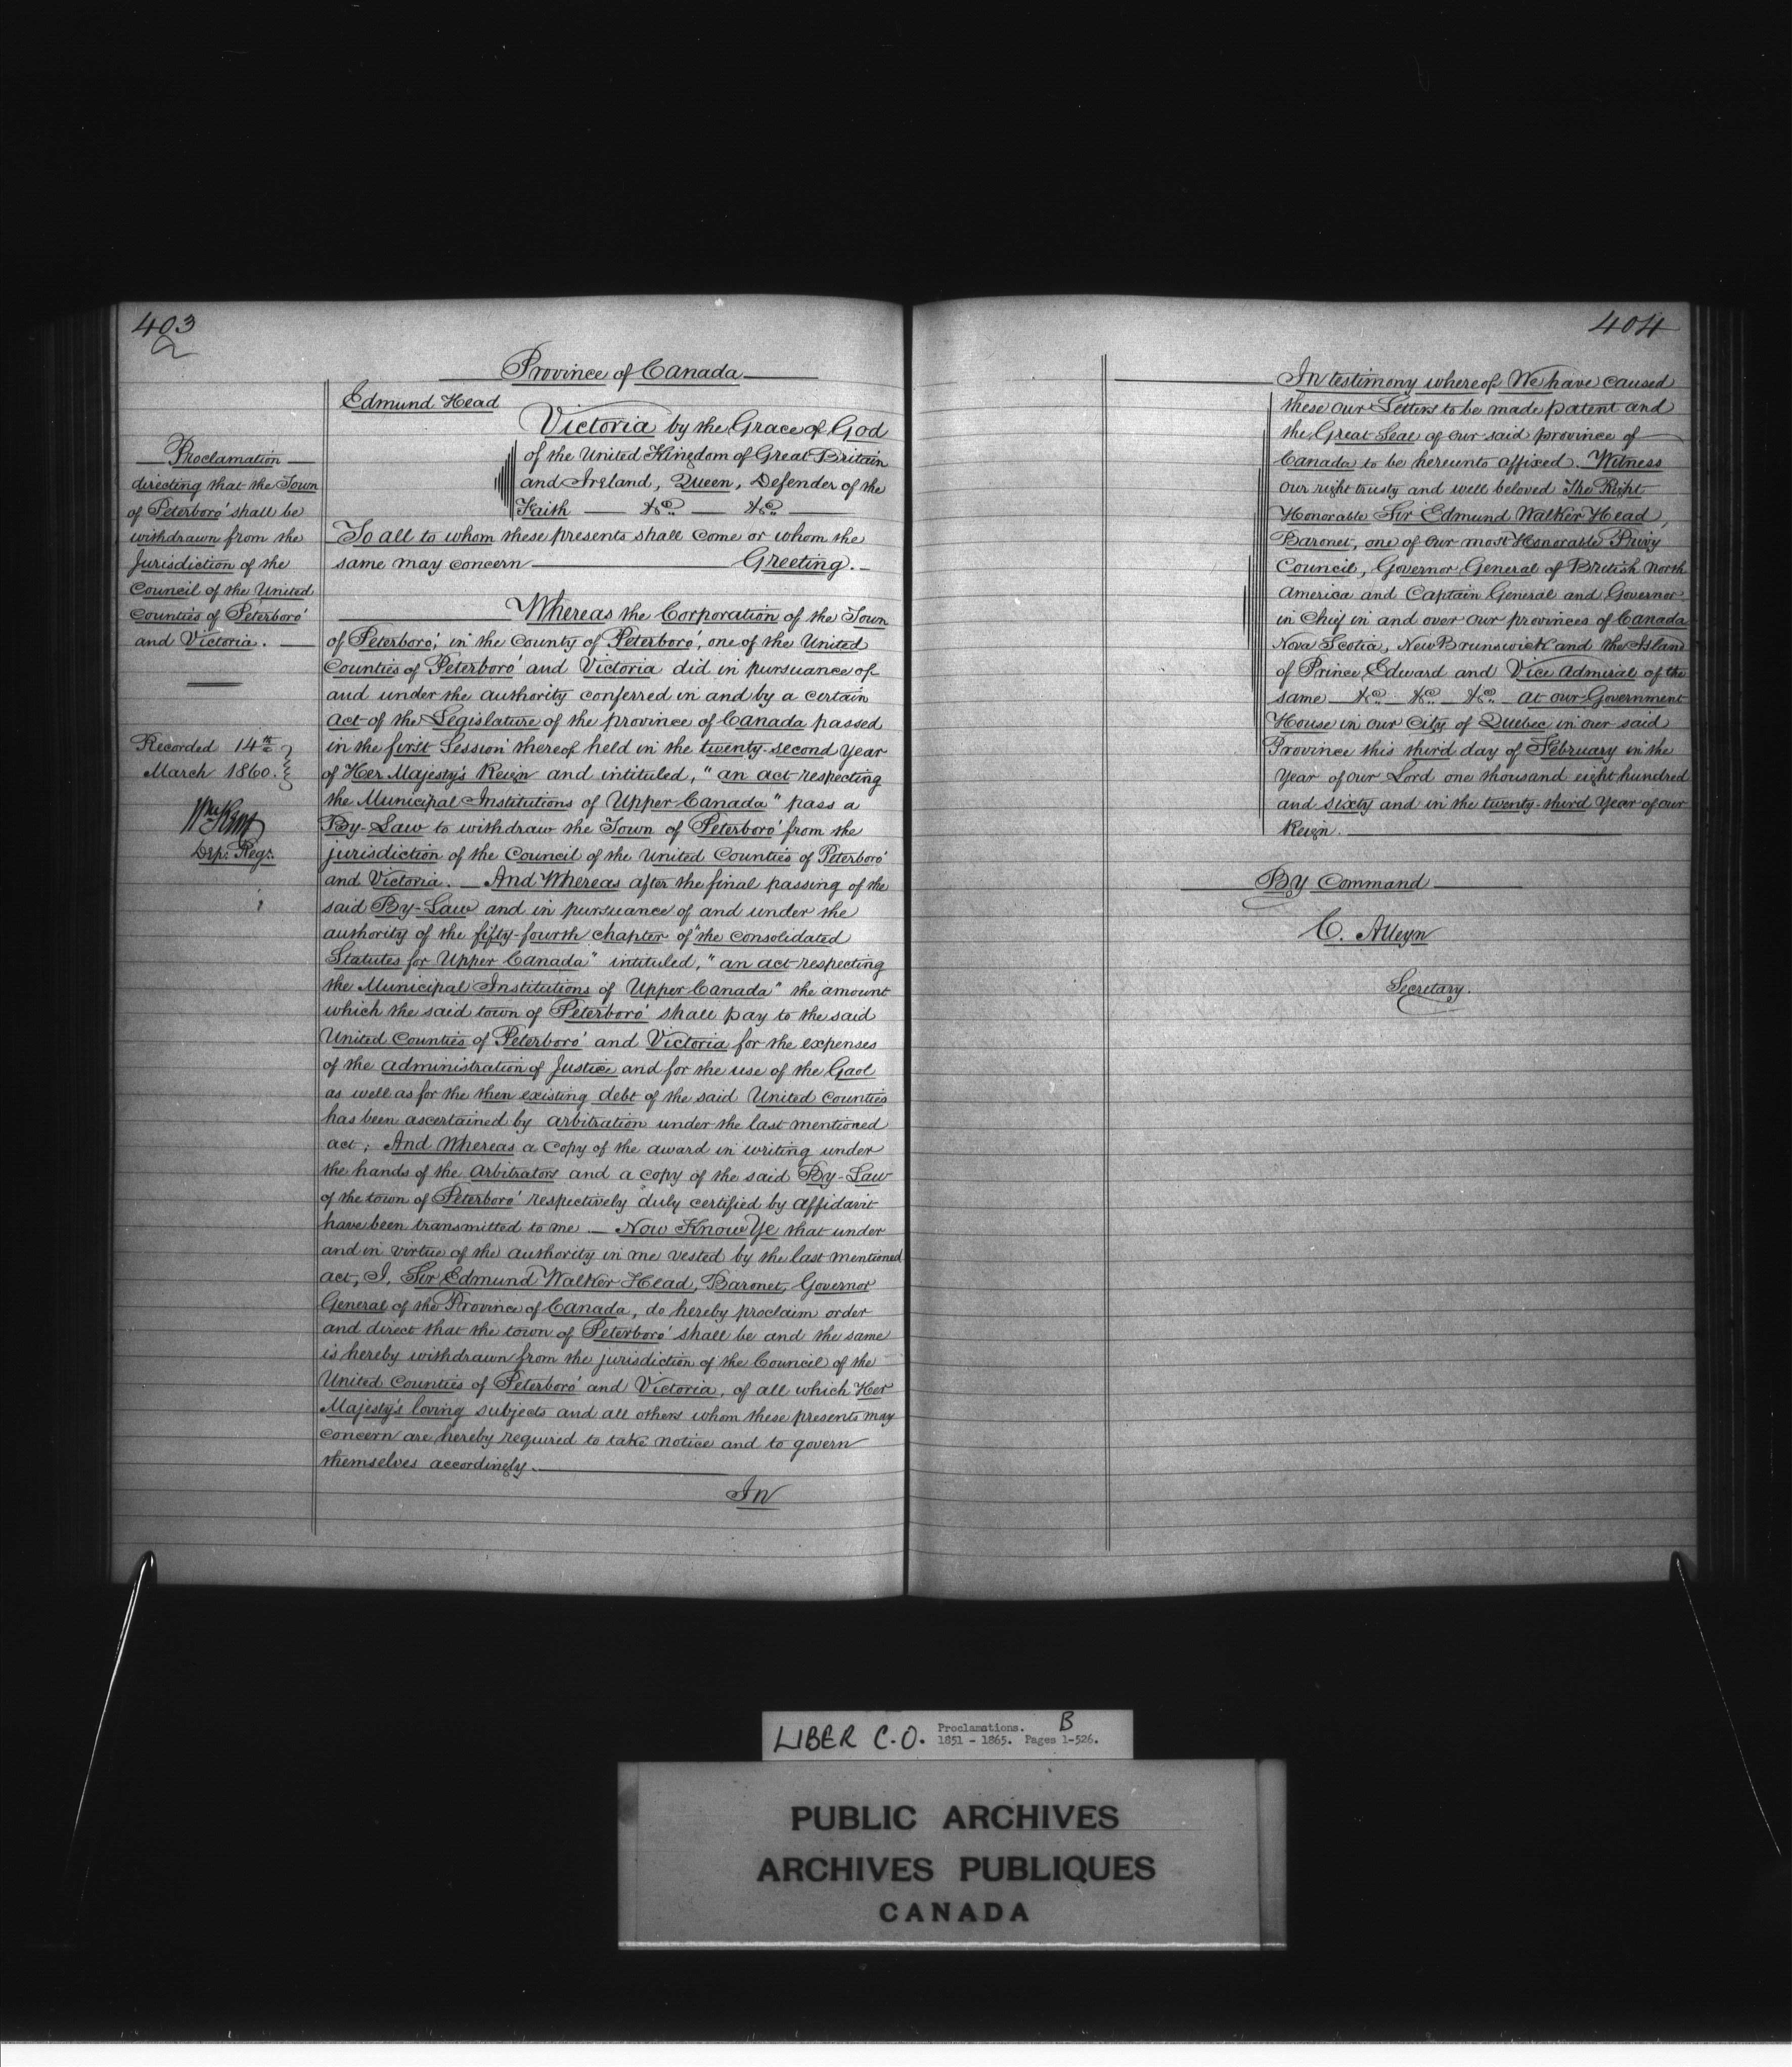 403
Province of Canada
Edmund Head
Victoria by the Grace of God
of the United Kingdom of Great Britain
and Ireland, Queen, Defender of the
Faith — &c. — &c. —
To all to whom these presents shall come or whom the
same may concern — Greeting. —
Proclamation
directing that the Town
of Peterboro' shall be
withdrawn from the
Jurisdiction of the
Council of the United
Counties of Peterboro'
and Victoria. —
Recorded 14th
March 1860.
Dep: Regr.
Whereas the Corporation of the Town
of Peterboro', in the County of Peterboro', one of the United
Counties of Peterboro' and Victoria did in pursuance of
and under the authority conferred in and by a certain
act of the Legislature of the province of Canada passed
in the first Session thereof held in the twenty-second year
of Her Majesty's Reign and intituled, "an act respecting
the Municipal Institutions of Upper Canada" pass a
By-Law to withdraw the Town of Peterboro' from the
jurisdiction of the Council of the United Counties of Peterboro'
and Victoria. — And Whereas after the final passing of the
said By-Law and in pursuance of and under the
authority of the fifty-fourth chapter of "the consolidated
Statutes for Upper Canada" intituled, "an act respecting
the Municipal Institutions of Upper Canada" the amount
which the said town of Peterboro' shall pay to the said
United Counties of Peterboro' and Victoria for the expenses
of the administration of Justice and for the use of the Gaol
as well as for the then existing debt of the said United Counties
has been ascertained by arbitration under the last mentioned
act; And Whereas a copy of the award in writing under
the hands of the arbitrators and a copy of the said By-Law
of the town of Peterboro' respectively duly certified by affidavit
have been transmitted to me — Now Know Ye that under
and in virtue of the authority in me vested by the last mentioned
act, I, Sir Edmund Walker Head, Baronet, Governor
General of the Province of Canada, do hereby proclaim order
and direct that the town of Peterboro' shall be and the same
is hereby withdrawn from the jurisdiction of the Council of the
United Counties of Peterboro' and Victoria, of all which Her
Majesty's loving subjects and all others whom these presents may
concern are hereby required to take notice and to govern
themselves accordingly. —
In
404
In testimony whereof We have caused
these our Letters to be made patent and
the Great Seal of our said province of
Canada to be hereunto affixed. Witness
our right trusty and well beloved The Right
Honorable Sir Edmund Walker Head,
Baronet, one of our most Honorable Privy
Council, Governor General of British North
America and Captain General and Governor
in Chief in and over our provinces of Canada
Nova Scotia, New Brunswick and the Island
of Prince Edward and Vice Admiral of the
same — &c. — &c. — &c. at our Government
House in our City of Quebec in our said
Province this third day of February in the
year of our Lord one thousand eight hundred
and sixty and in the twenty-third Year of our
Reign. —
By Command
C. Alleyn
Secretary.
LIBER C.O. Proclamations. B
1851 - 1865. Pages 1-526.
PUBLIC ARCHIVES
ARCHIVES PUBLIQUES
CANADA